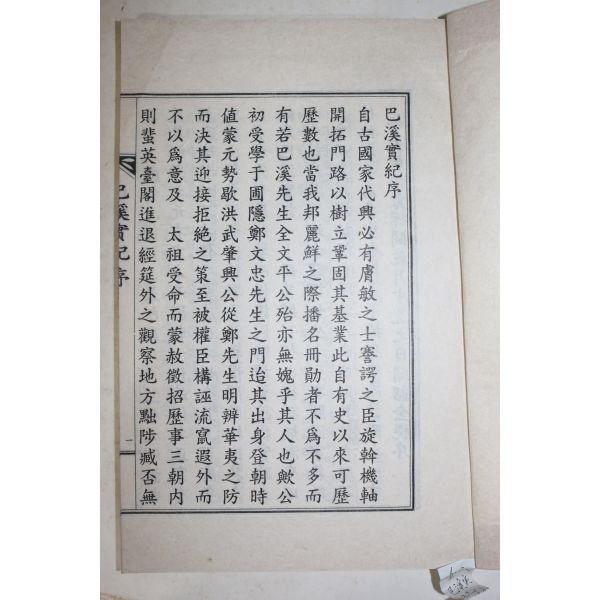 巴溪實紀序
自古國家代興必有膚敏之士謇諤之臣旋斡機軸
開拓門路以樹立鞏固其基業此自有史以來可歷
歷數也當我邦麗鮮之際播名冊勛者不爲不多而
有若巴溪先生全文平公殆亦無媿乎其人也歟公
初受學于圃隱鄭文忠先生之門迨其出身登朝時
値蒙元勢歇洪武肇興公從鄭先生明辨華夷之防
而決其迎接拒絶之策至被權臣構誣流竄遐外而
不以爲意及 太祖受命而蒙赦徵招歷事三朝內
則蜚英臺閣進退經筵外之觀察地方黜陟臧否無
巴溪實紀序
一